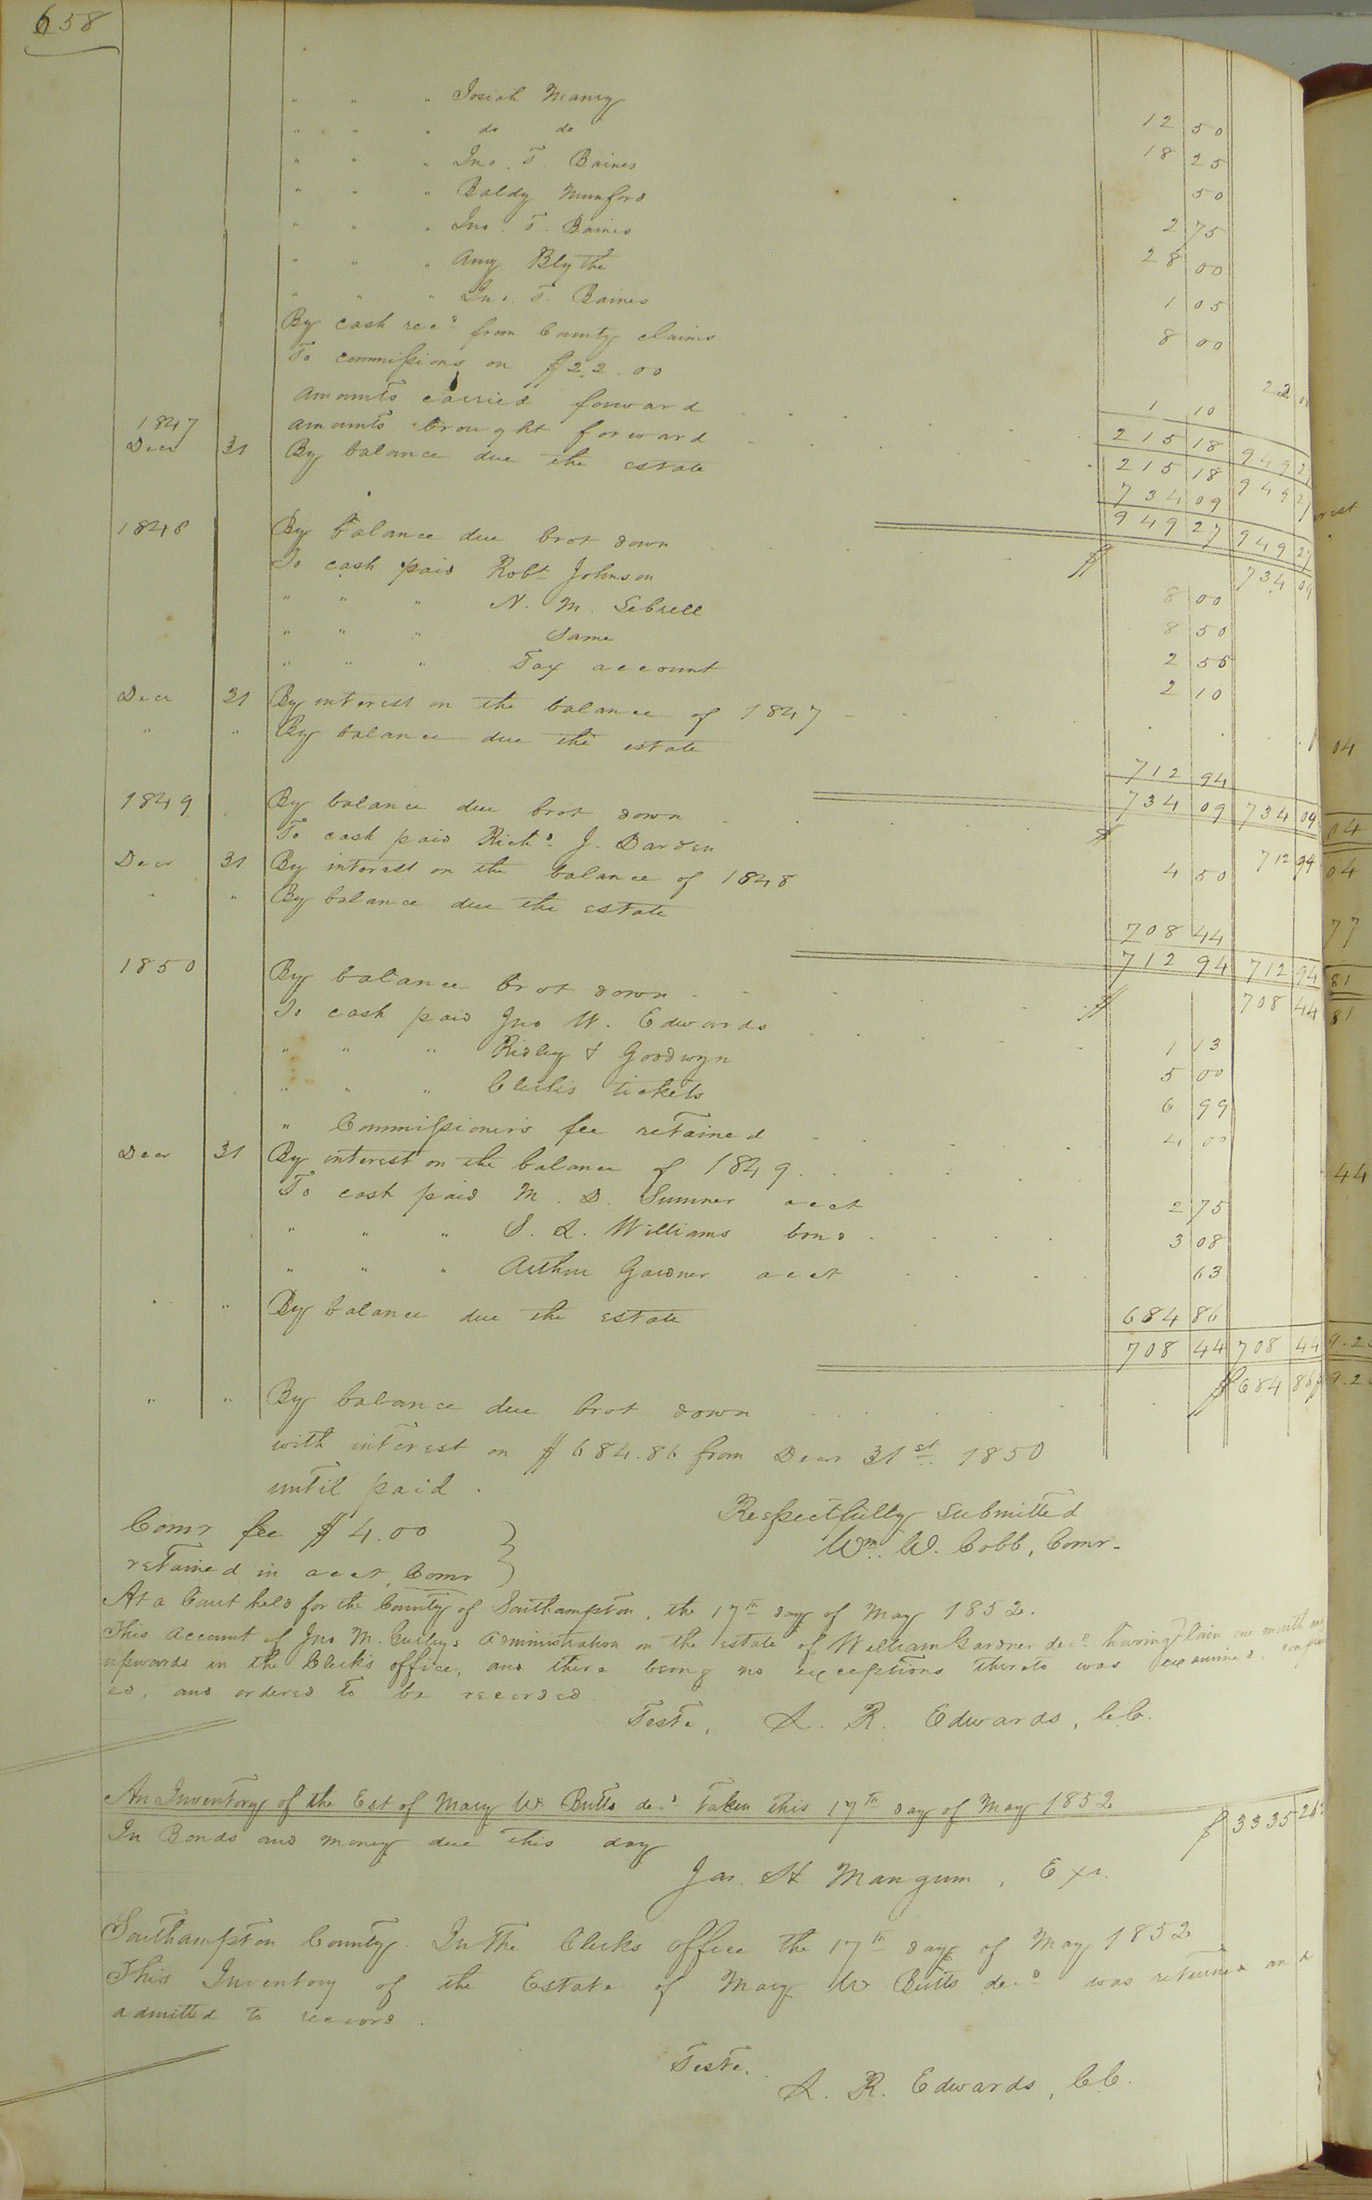 658
" " " Josiah Maney 12 50
" " " do do 18 25
" " " Jno. T. Baines 50
" " " Baldy Munford 2 75
" " " Jno. T. Baines 28 00
" " " Amy Blythe 1 05
" " " Jno. T. Baines 8 00
By cash recd from County claims 22 00
To commissions on $22.00 1 10
Amounts carried forward 215 18 949 27
1847 Amounts brought forward 215 18 949 27
Decr 31 By balance due the estate 734 09
949 27 949 27
1848 By balance due brot down $ 734 09
To cash paid Robt Johnson 8 00
" " " N. M. Sebrell 8 50
" " " Same 2 55
" " " Tax account 2 10
Decr 31 By interest on the balance of 1847
" " By balance due the estate 712 94
734 09 734 09
1849 By balance due brot down $ 712 94
To cash paid Richd J. Darden 4 50
Decr 31 By interest on the balance of 1848
" " By balance due the estate 708 44
712 94 712 94
1850 By balance brot down $ 708 44
To cash paid Jno W. Edwards 1 13
" " " Ridley & Goodwyn 5 00
" " " Clerk's tickets 6 99
" Commissioners fee retained 4 00
Decr 31 By interest on the balance of 1849
To cash paid M. D. Sumner acct 2 75
" " " S. L. Williams bond 3 08
" " " Arthur Gardner acct 63
" " By balance due the estate 684 86
708 44 708 44
" " By balance due brot down $ 684 86
with interest on $684.86 from Decr 31st 1850
until paid.
Respectfully submitted
Comr fee $4.00
Wm. W. Cobb, Comr.
retained in acct, Comr
At a Court held for the County of Southampton, the 17th day of May 1852.
This account of Jno M. Gurley's administration on the estate of William Gardner decd. having lain one month and
upwards in the Clerk's office, and there being no exceptions thereto was examined, confirm
ed, and ordered to be recorded.
Teste, L. R. Edwards, C.C.
An Inventory of the Est of Mary W. Butts decd taken this 17th day of May 1852
In Bonds and money due this day $ 3335
Jas. H Mangum, Exr.
Southampton County. In the Clerks office the 17th day of May 1852
This Inventory of the Estate of Mary W Butts decd was returned and
admitted to record.
Teste.
L. R. Edwards, C.C.